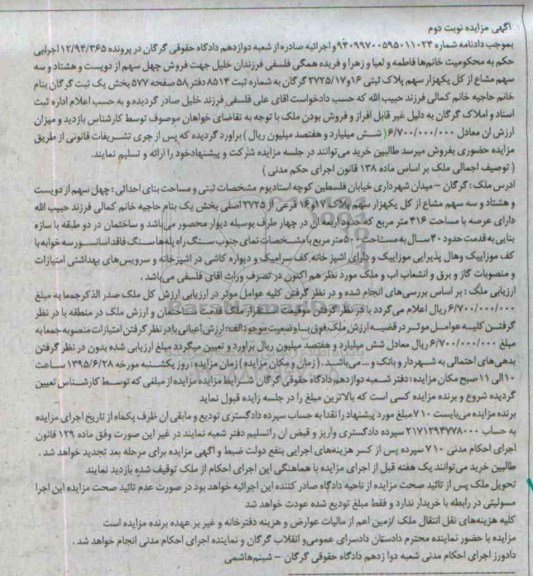 آگهی مزایده نوبت دوم
بموجب دادنامه شماره ۹۴۰۹۹۷۰۰۵۹۵۰۱۱۰۲۴ و اجرائیه صادره از شعبه دوازدهم دادگاه حقوقی گرگان در پرونده ۱۲/۹۴/۳۶۵ اجرایی
حکم به محکومیت خانم‌ها فاطمه و لعیا و زهرا و فریده همگی فلسفی فرزندان خلیل جهت فروش چهل سهم از دویست و هشتاد و سه
سهم مشاع از کل یکهزار سهم پلاک ثبتی ۱۶و۲۷۲۵/۱۷ گرگان به شماره ثبت ۸۵۱۴ دفتر ۵۸ صفحه ۵۷۷ بخش یک ثبت گرگان بنام
خانم حاجیه خانم کمالی فرزند حبیب الله که حسب دادخواست اقای علی فلسفی فرزند خلیل صادر گردیده و به حسب اعلام اداره ثبت
اسناد و املاک گرگان به دلیل غیر قابل افراز و فروش بودن ملک با توجه به تقاضای خواهان موصوف توسط کارشناس بازدید و میزان
ارزش ان معادل ۶/۷۰۰/۰۰۰/۰۰۰ ( شش میلیارد و هفتصد میلیون ریال ) براورد گردیده که پس از جری تشریفات قانونی از طریق
مزایده حضوری بفروش میرسد طالبین خرید می‌توانند در جلسه مزایده شرکت و پیشنهاد خود را ارائه و تسلیم نمایند.
( توصیف اجمالی ملک بر اساس ماده ۱۳۸ قانون اجرای حکم مدنی )
ادرس ملک : گرگان – میدان شهرداری خیابان فلسطین کوچه استادیوم مشخصات ثبتی و مساحت بنای احداثی : چهل سهم از دویست
و هشتاد و سه سهم مشاع از کل یکهزار سهم پلاک ۱۷و۱۶ فرعی از ۲۷۲۵ اصلی بخش یک بنام حاجیه خانم کمالی فرزند حبیب الله
دارای عرصه با مساحت ۴۱۶ متر مربع که حدود اربعه ان در چهار طرف بوسیله دیوار محصور می‌باشد و ساختمان در دو طبقه با سازه
بنایی به قدمت حدود ۴۰ سال به مساحت ۵۰۰ متر مربع با مشخصات نمای جنوب سنگ راه پله‌ها سنگ فاقد اسانسور سه خوابه با
کف موزاییک وهال پذیرایی موزاییک و دارای اشپز خانه کف سرامیک و دیواره کاشی در اشپزخانه و سرویس‌های بهداشتی امتیازات
و منصوبات گاز و برق و انشعاب اب و ملک مورد نظر هم اکنون در تصرف وراث اقای فلسفی می‌باشد .
ارزیابی ملک : بر اساس بررسی‌های انجام شده و در نظر گرفتن کلیه عوامل موثر در ارزیابی ارزش کل ملک صدر الذکر جمعا به مبلغ
۶/۷۰۰/۰۰۰/۰۰۰ ریال اعلام می‌گردد با در نظر گرفتن موقعیت استقرار ملک قدمت ساختمان و ارزش ملک در منطقه با در نظر
گرفتن کلیه عوامل موثر در قضیه ارزش ملک فوق با وضعیت موجود الف: ارزش اعیانی با در نظر گرفتن امتیازات منصوبه جمعا به
مبلغ ۶/۷۰۰/۰۰۰/۰۰۰ ریال معادل شش میلیارد و هفتصد میلیون ریال براورد و تعیین میگردد مبلغ ارزیابی شده بدون در نظر گرفتن
بدهی‌های احتمالی به شهردار و بانک و ... می‌باشد. ( زمان و مکان مزایده ) زمان مزایده : روز یکشنبه مورخه ۱۳۹۵/۶/۲۸ ساعت
۱۰ الی ۱۱ صبح مکان مزایده : دفتر شعبه دوازدهم دادگاه حقوقی گرگان شرایط مزایده مزایده از مبلغی که توسط کارشناس تعیین
گردیده شروع و برنده مزایده کسی است که بالاترین مبلغ را در جلسه زاید قبول نماید
برنده مزایده می‌بایست ۷۱۰ مبلغ مورد پیشنهاد را نقدا به حساب سپرده دادگستری تودیع و مابقی ان ظرف یکماه از تاریخ اجرای مزایده
به حساب ۲۱۷۱۲۹۴۷۷۸۰۰۰ سپرده دادگستری واریز و قبض ان راتسلیم دفتر شعبه نمایند در غیر این صورت وفق ماده ۱۲۹ قانون
اجرای احکام مدنی ۷۱۰ سپرده پس از کسر هزینه‌های اجرایی بنفع دولت ضبط و اگهی مزایده برای مرحله بعد تجدید خواهد شد .
طالبین خرید می‌توانند یک هفته قبل از اجرای مزایده با هماهنگی این اجرای احکام از ملک توقیف شده بازدید نمایند
تحویل ملک پس از تائید صحت مزایده از ناحیه دادگاه صادر کننده این اجرائیه خواهد بود در صورت عدم تائید صحت مزایده این اجرا
مسولیتی در رابطه با خریدار ندارد و فقط مبلغ تودیع شده عودت خواهد شد
کلیه هزینه‌های نقل انتقال ملک ازمین اعم از مالیات عوارض و هزینه دفترخانه و غیر بر عهده برنده مزایده است
مزایده با حضور نماینده محترم دادستان دادسرای عمومی و انقلاب گرگان و نماینده اجرای احکام مدنی انجام خواهد شد .
دادورز اجرای احکام مدنی شعبه دوازدهم دادگاه حقوقی گرگان – شبنم‌هاشمی